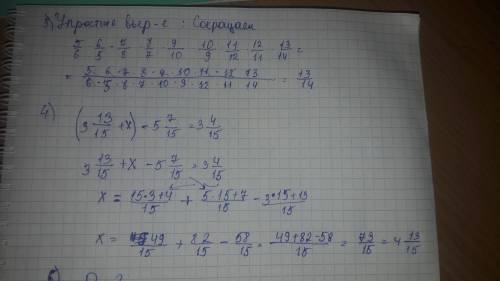 3) Упростие выр-е : Сокращаем
5/6 · 6/5 · 7/8 · 8/7 · 9/10 · 10/9 · 11/12 · 12/11 · 13/14 =
= 5·6·7·8·9·10·11·12·13 / 6·5·8·7·10·9·12·11·14 = 13/14
4)
(3 13/15 + x) - 5 7/15 = 3 4/15
3 13/15 + x - 5 7/15 = 3 4/15
x = 15·3+4/15 + 5·15+7/15 - 3·15+13/15
x = 49/15 + 82/15 - 58/15 = 49+82-58/15 = 73/15 = 4 13/15